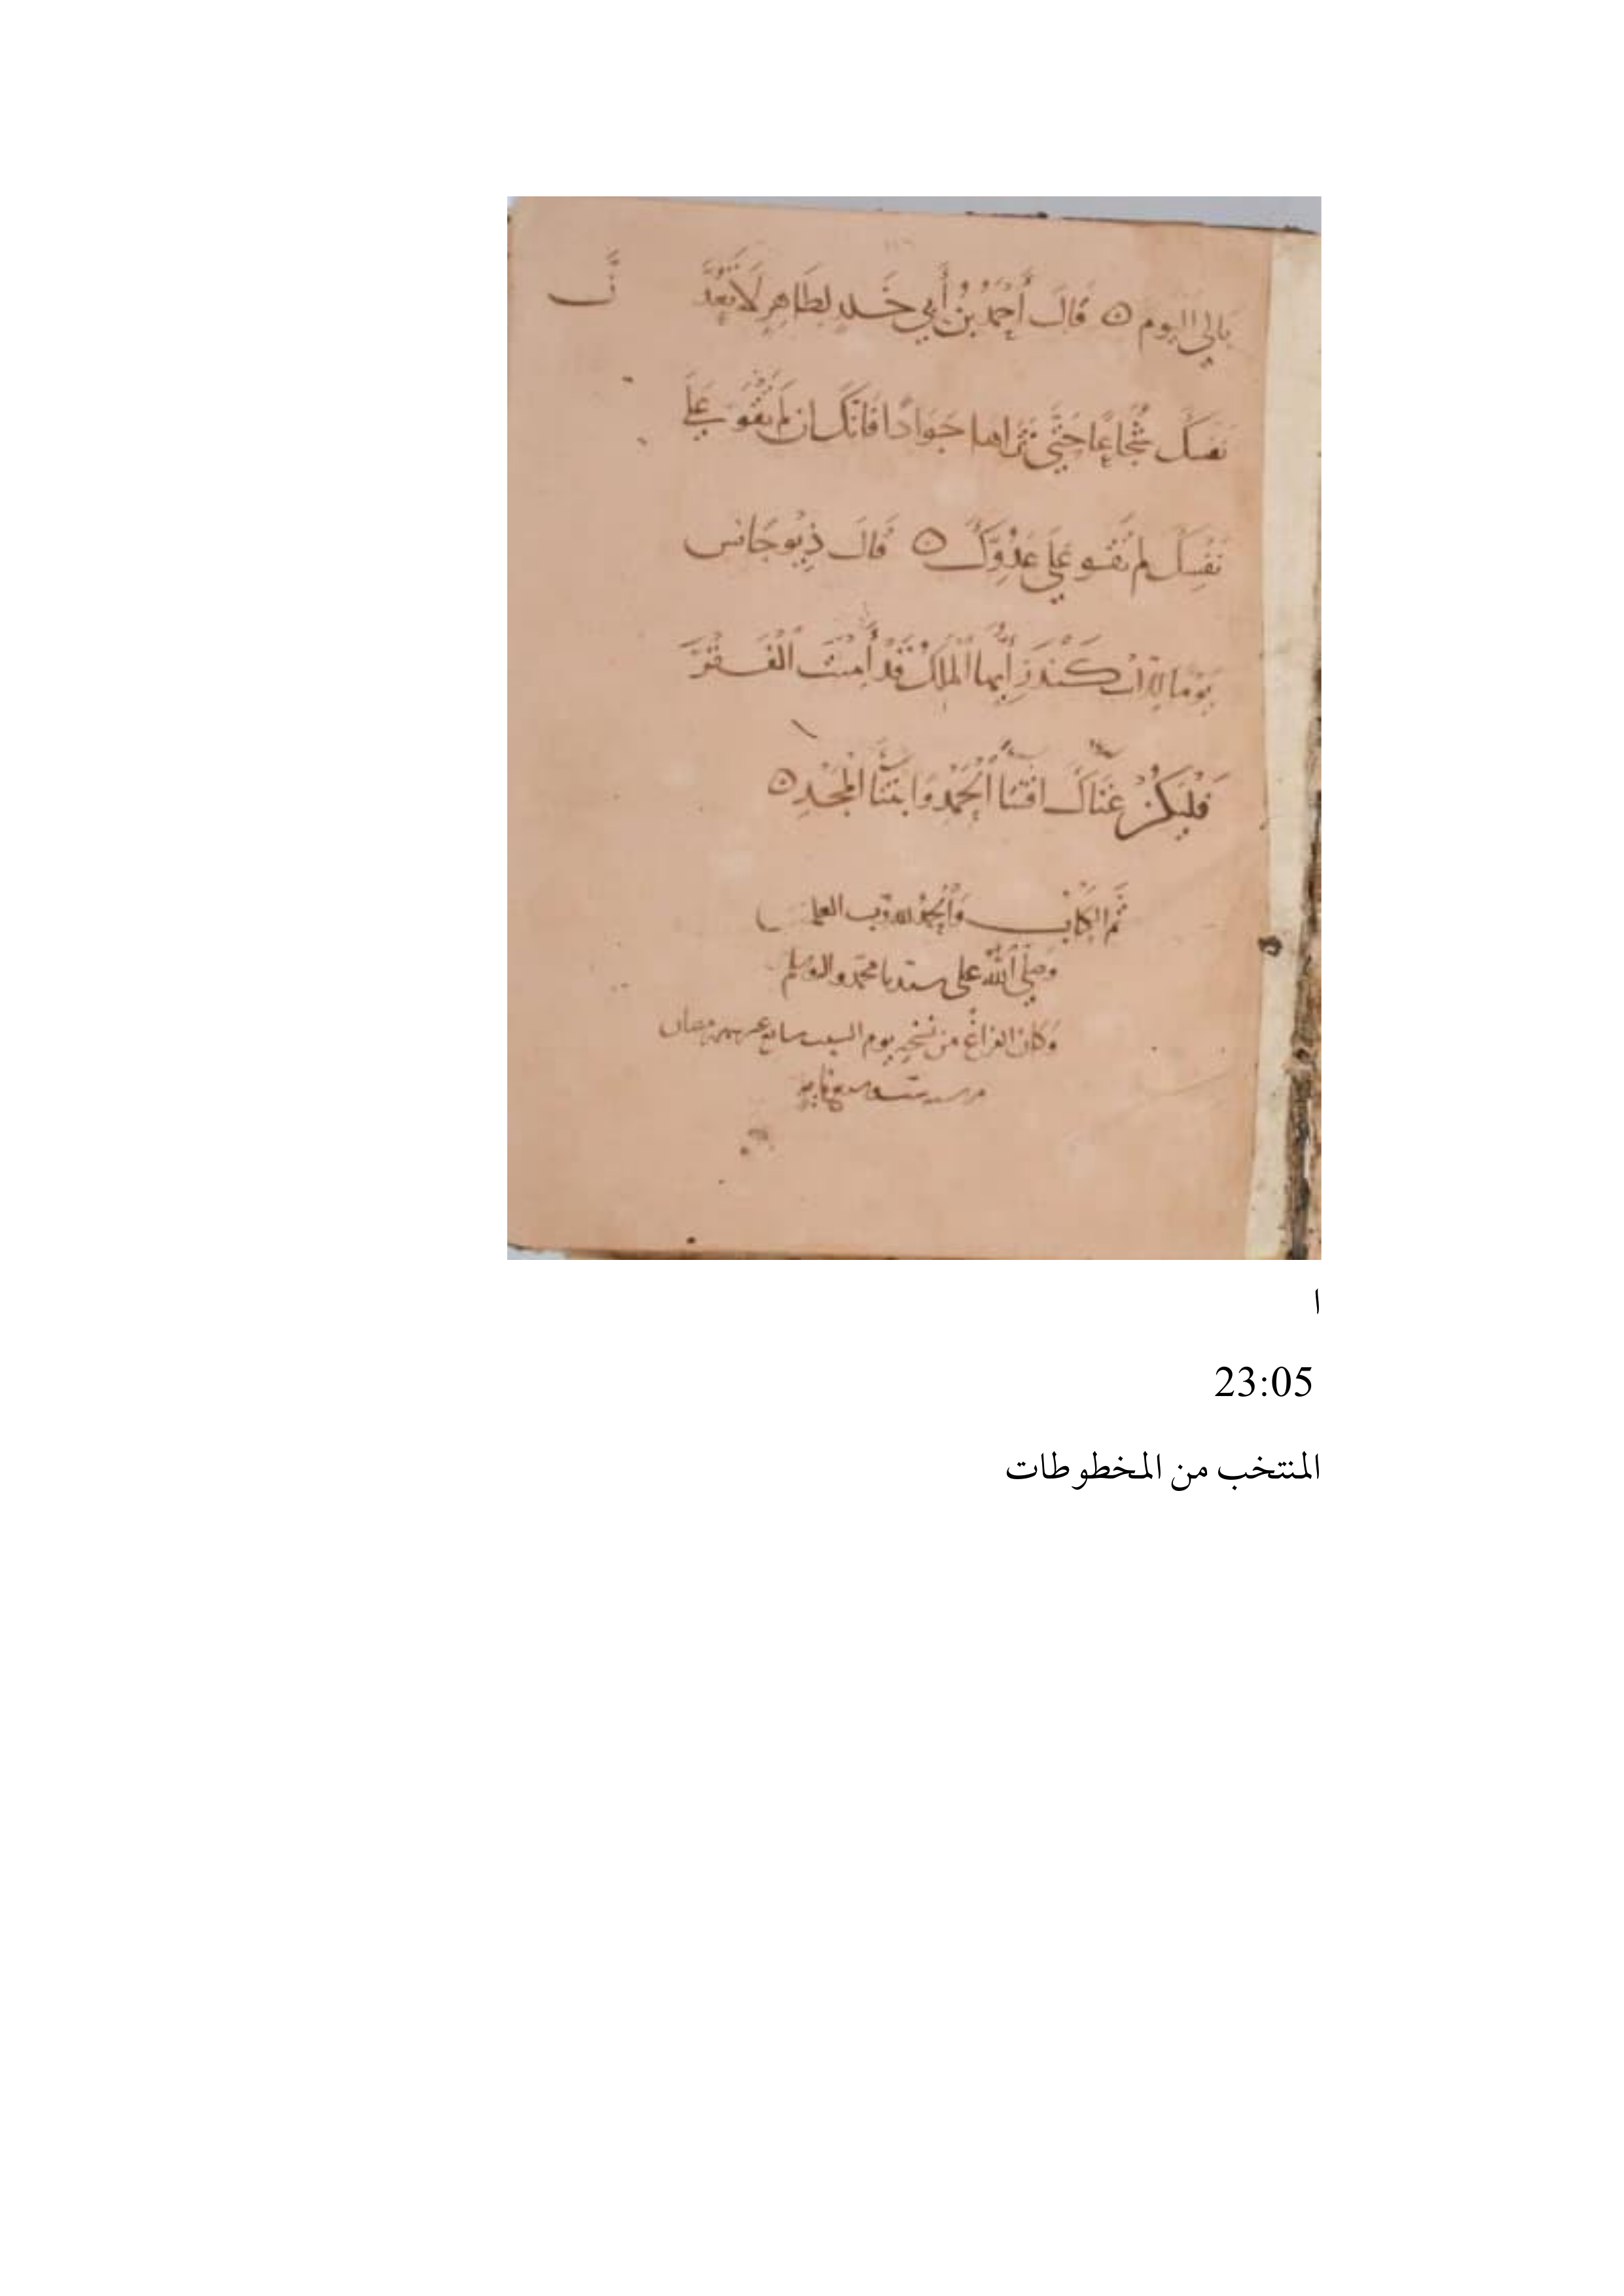 بالي اليوم ٥ قَالَ أَحْمَدُ بْنُ أَبِي خَلِدٍ لِطَاهِرٍ لَا تَعُدَّنَّ
نَفْسَكَ شُجَاعًا حَتَّى تَرَاهَا جَوَادًا فَانَّكَ ان لم تَقْوَ عَلَى
نَفْسِكَ لم تَقْوَ عَلَى عَدُوِّكَ ٥ قَالَ ذِيُوجَانِس
يَوْمًا لِلْاسْكَنْدَرِ أَيُّهَا الْمَلِكُ قَدْ أَمِنْتَ الْفَقْرَ
فَلْيَكُنْ غِنَاكَ اقْتِنَا الْحَمْدِ وَابْتِنَا الْمَجْدِ ٥
تَمَّ الكِتَابُ وَالْحَمْدُ لله رَبِّ العلمين
وَصَلَّى اللهُ على سيدنا محمد واله وسلم
وَكَانَ الفراغ من نسخه يوم السبت سابع عشر شهر رمضان
ا
23:05
المنتخب من المخطوطات